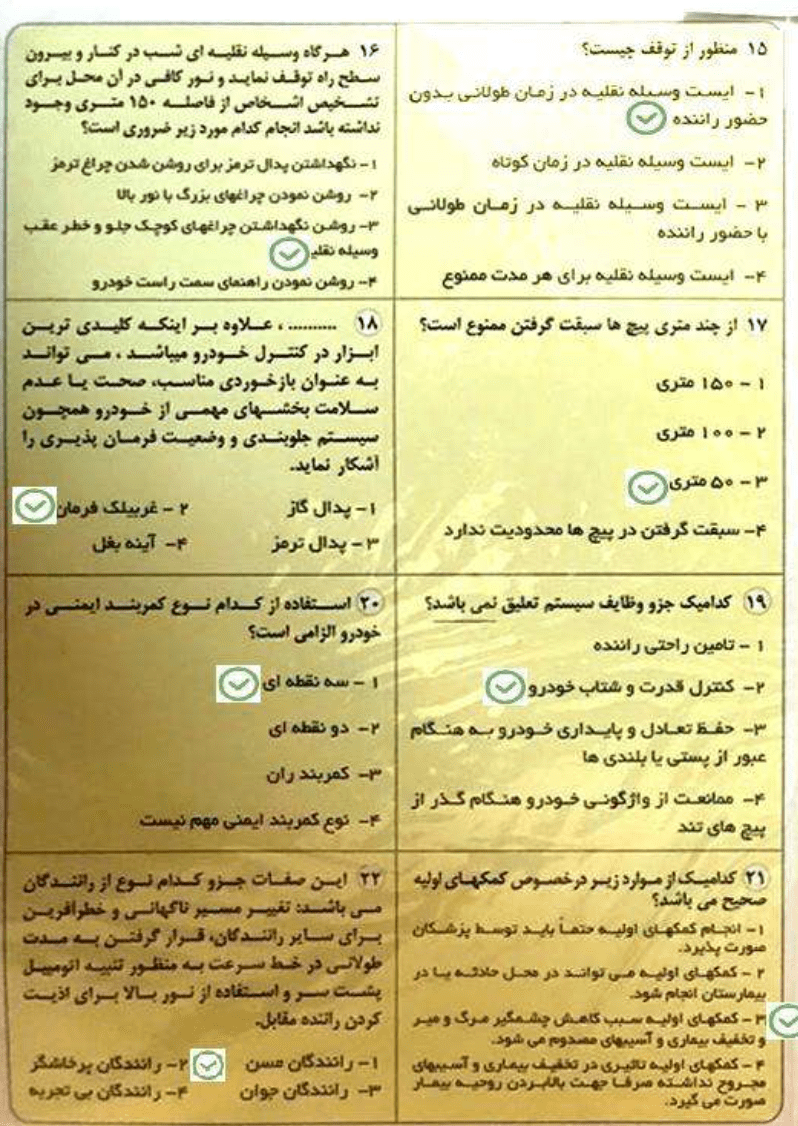 ۱۵ منظور از توقف چیست؟
۱- ایست وسیله نقلیه در زمان طولانی بدون
حضور راننده
۲- ایست وسیله نقلیه در زمان کوتاه
۳ - ایست وسیله نقلیه در زمان طولانی
با حضور راننده
۴- ایست وسیله نقلیه برای هر مدت ممنوع
۱۶ هرگاه وسیله نقلیه ای شب در کنار و بیرون
سطح راه توقف نماید و نور کافی در آن محل برای
تشخیص اشخاص از فاصله ۱۵۰ متری وجود
نداشته باشد انجام کدام مورد زیر ضروری است؟
۱- نگهداشتن پدال ترمز برای روشن شدن چراغ ترمز
۲- روشن نمودن چراغهای بزرگ با نور بالا
۳- روشن نگهداشتن چراغهای کوچک جلو و خطر عقب
وسیله نقلی
۴- روشن نمودن راهنمای سمت راست خودرو
۱۷ از چند متری پیچ ها سبقت گرفتن ممنوع است؟
۱ - ۱۵۰ متری
۲ - ۱۰۰ متری
۳ - ۵۰ متری
۴- سبقت گرفتن در پیچ ها محدودیت ندارد
۱۸ .......... ، علاوه بر اینکه کلیدی ترین
ابزار در کنترل خودرو میباشد ، می تواند
به عنوان بازخوردی مناسب، صحت یا عدم
سلامت بخشهای مهمی از خودرو همچون
سیستم جلوبندی و وضعیت فرمان پذیری را
آشکار نماید.
۱- پدال گاز ۲ - غربیلک فرمان
۳ - پدال ترمز ۴- آینه بغل
۱۹ کدامیک جزو وظایف سیستم تعلیق نمی باشد؟
۱ - تامین راحتی راننده
۲- کنترل قدرت و شتاب خودرو
۳- حفظ تعادل و پایداری خودرو به هنگام
عبور از پستی یا بلندی ها
۴- ممانعت از واژگونی خودرو هنگام گذر از
پیچ های تند
۲۰ استفاده از کدام نوع کمربند ایمنی در
خودرو الزامی است؟
۱ - سه نقطه ای
۲- دو نقطه ای
۳- کمربند ران
۴- نوع کمربند ایمنی مهم نیست
۲۱ کدامیک از موارد زیر درخصوص کمکهای اولیه
صحیح می باشد؟
۱- انجام کمکهای اولیه حتماً باید توسط پزشکان
صورت پذیرد.
۲ - کمکهای اولیه می تواند در محل حادثه یا در
بیمارستان انجام شود.
۳ - کمکهای اولیه سبب کاهش چشمگیر مرگ و میر
و تخفیف بیماری و آسیبهای مصدوم می شود.
۴ - کمکهای اولیه تاثیری در تخفیف بیماری و آسیبهای
مجروح نداشته صرفا جهت بالابردن روحیه بیمار
صورت می گیرد.
۲۲ این صفات جزو کدام نوع از رانندگان
می باشد: تغییر مسیر ناگهانی و خطرآفرین
برای سایر رانندگان، قرار گرفتن به مدت
طولانی در خط سرعت به منظور تنبیه اتومبیل
پشت سر و استفاده از نور بالا برای اذیت
کردن راننده مقابل.
۱- رانندگان مسن ۲- رانندگان پرخاشگر
۳- رانندگان جوان ۴- رانندگان بی تجربه